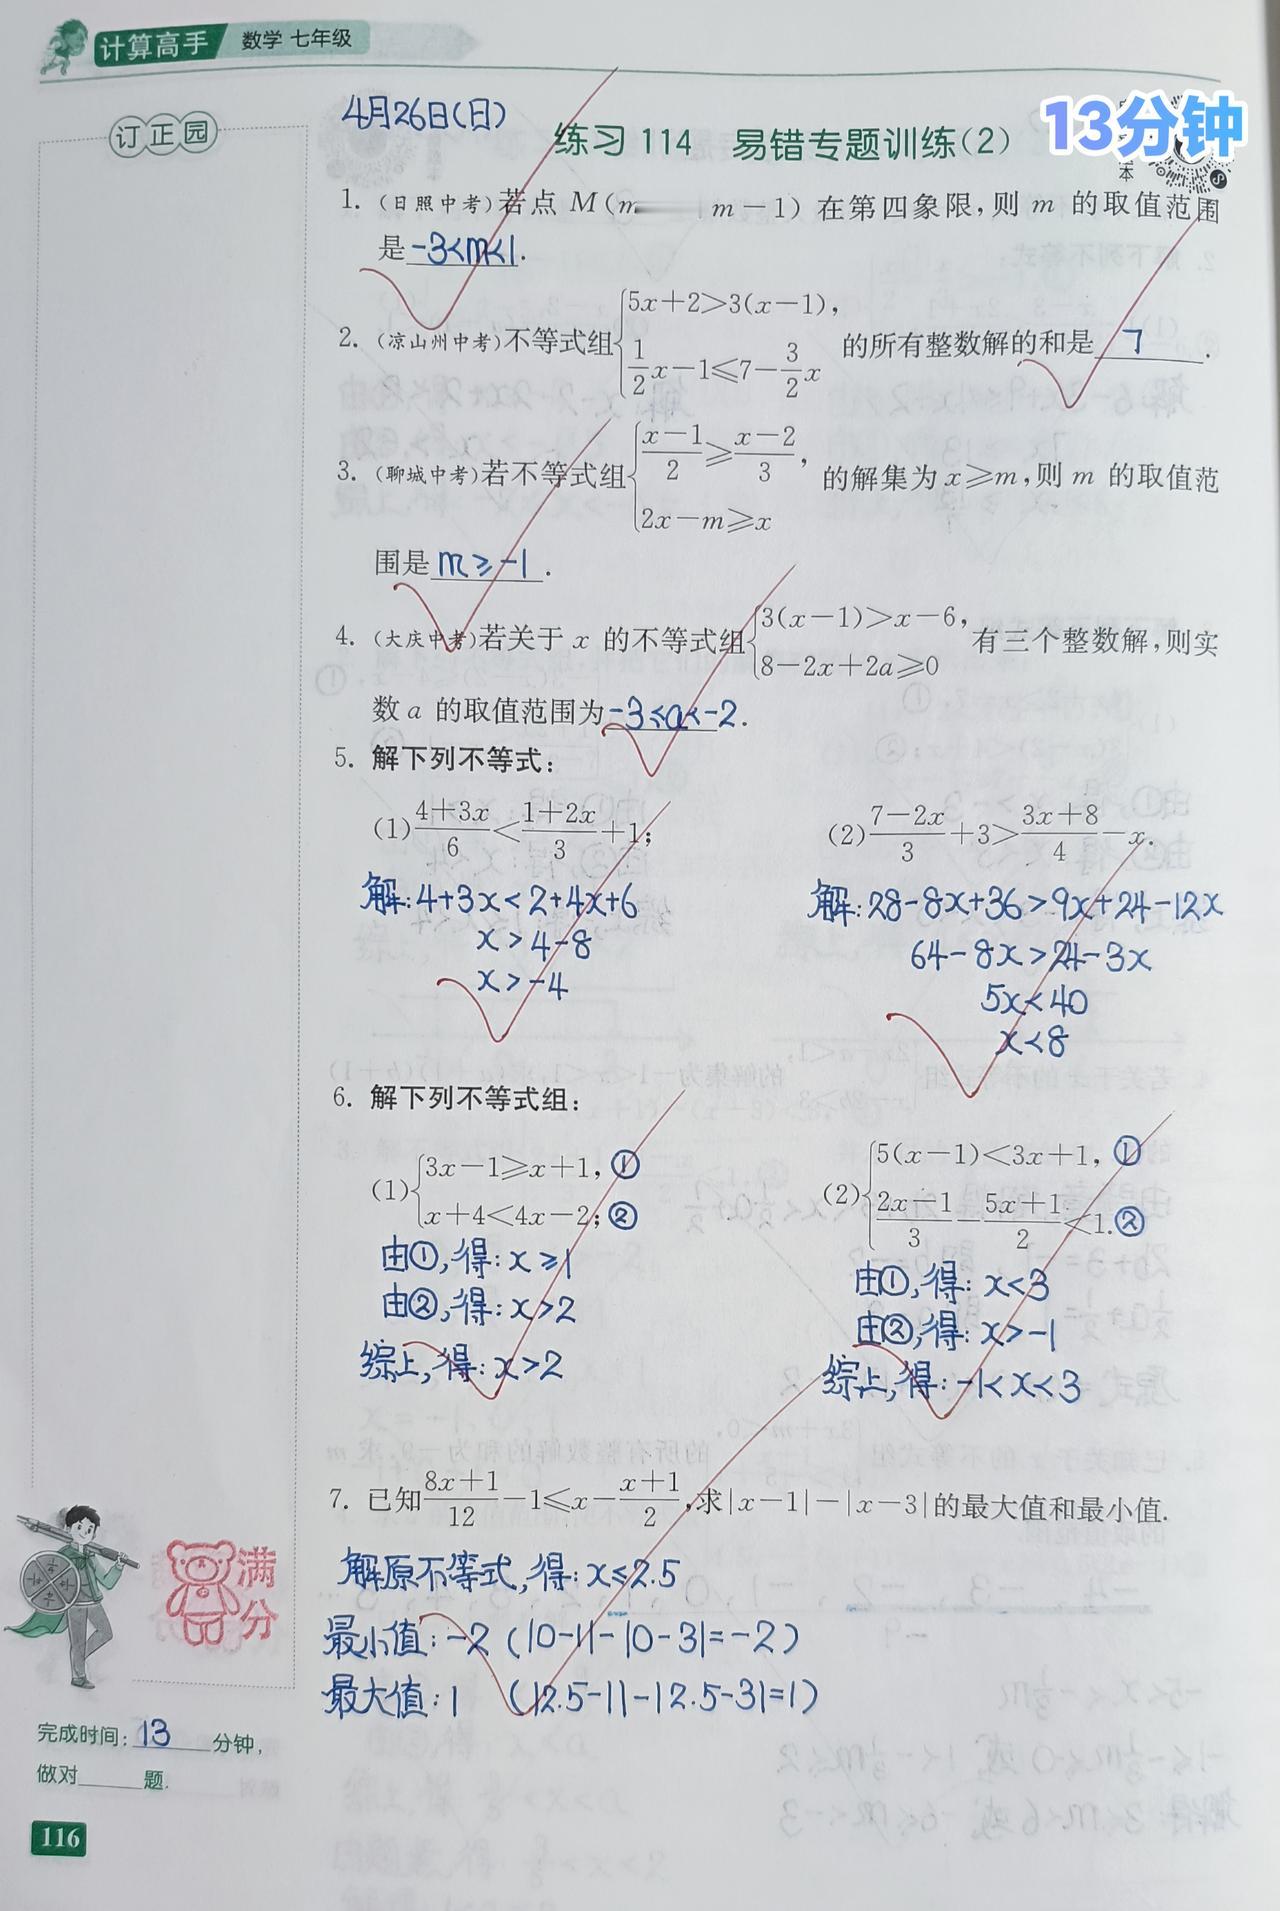 计算高手 数学 七年级
订正园
4月26日(日)
13分钟
练习 114 易错专题训练(2)
本
1. (日照中考)若点 M(m m-1) 在第四象限,则 m 的取值范围
是 -3<m<1.
2. (凉山州中考)不等式组{5x+2>3(x-1), 1/2x-1⩽7-3/2x 的所有整数解的和是 7.
3. (聊城中考)若不等式组{(x-1)/2⩾(x-2)/3, 2x-m⩾x 的解集为 x⩾m,则 m 的取值范
围是 m⩾-1.
4. (大庆中考)若关于 x 的不等式组{3(x-1)>x-6, 8-2x+2a⩾0 有三个整数解,则实
数 a 的取值范围为 -3⩽a<-2.
5. 解下列不等式:
(1) (4+3x)/6<(1+2x)/3+1;
解:4+3x<2+4x+6
x>4-8
x>-4
(2) (7-2x)/3+3>(3x+8)/4-x.
解:28-8x+36>9x+24-12x
64-8x>24-3x
5x<40
x<8
6. 解下列不等式组:
(1){3x-1⩾x+1,① x+4<4x-2;②
由①,得:x⩾1
由②,得:x>2
综上,得:x>2
(2){5(x-1)<3x+1,① (2x-1)/3-(5x+1)/2<1.②
由①,得:x<3
由②,得:x>-1
综上,得:-1<x<3
7. 已知(8x+1)/12-1⩽x-(x+1)/2,求|x-1|-|x-3|的最大值和最小值.
解原不等式,得:x⩽2.5
最小值:-2 (|0-1|-|0-3|=-2)
最大值:1 (|2.5-1|-|2.5-3|=1)
满分
完成时间:13分钟,
做对 题.
116